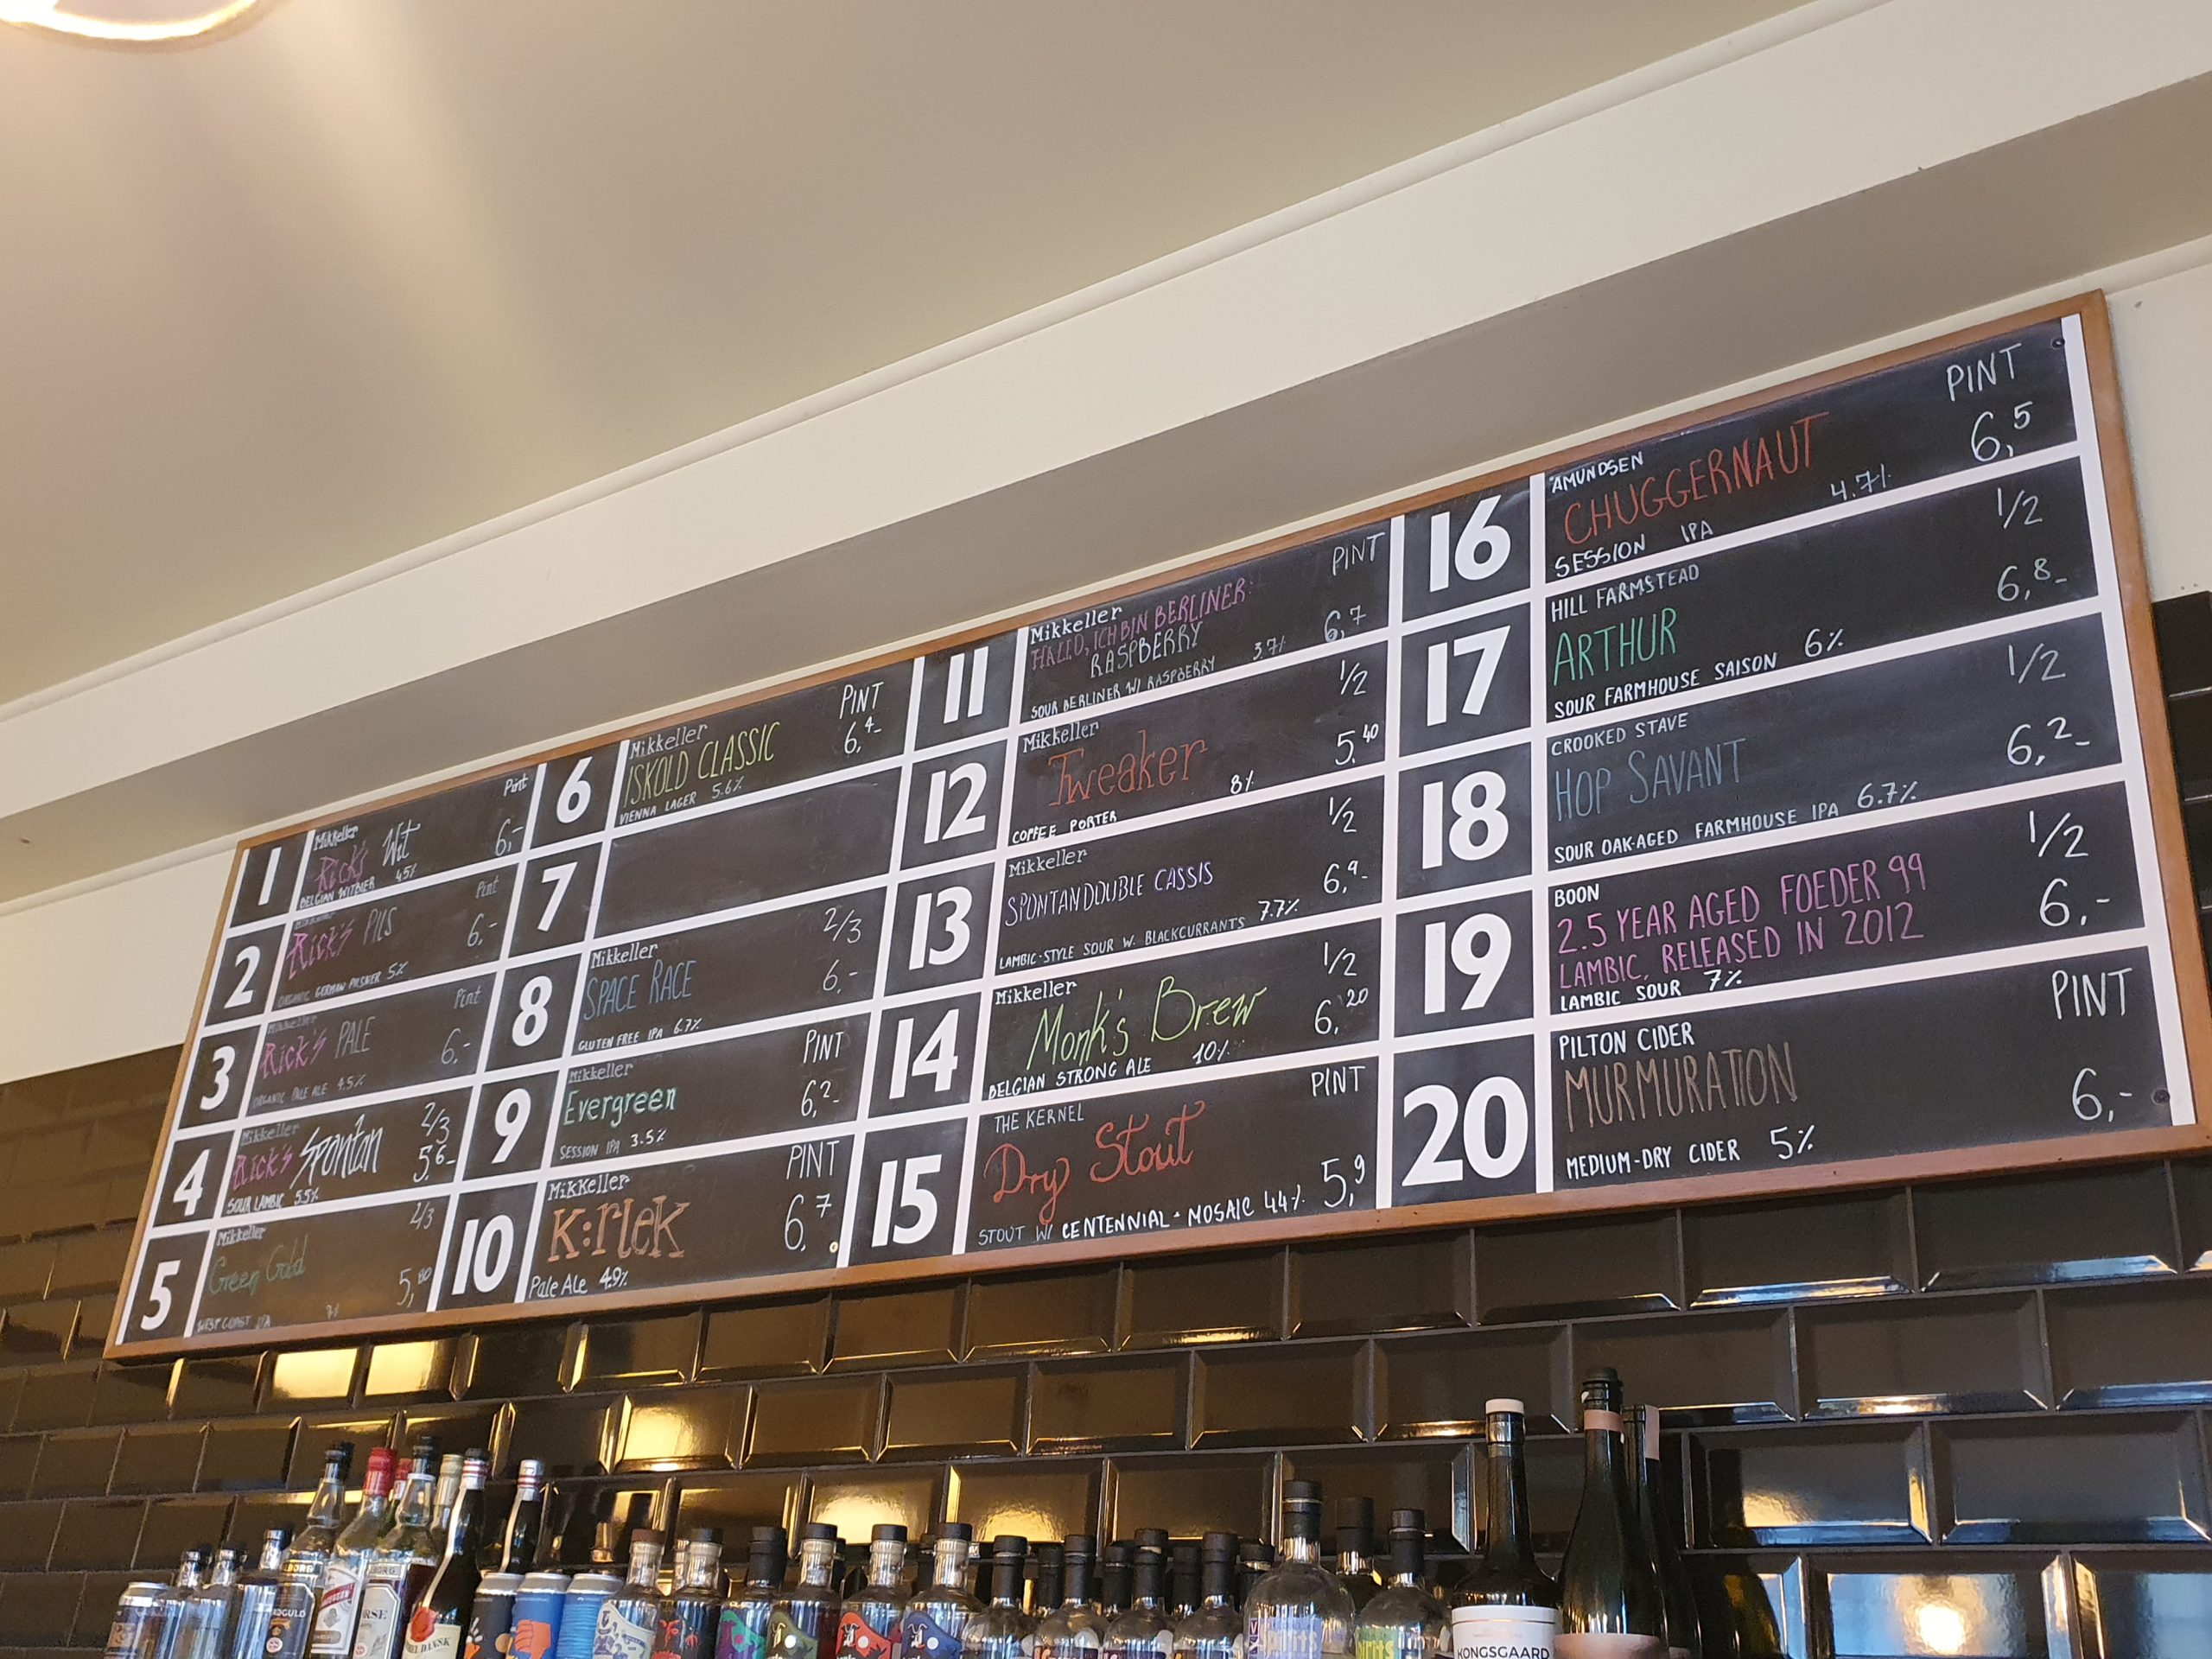 1
Mikkeller
Pint
Rick's Wit
6,-
BELGIAN WITBIER 4.5%
2
Pint
Rick's PILS
6,-
ORGANIC GERMAN PILSNER 5%
3
Mikkeller
Pint
Rick's PALE
6,-
ORGANIC PALE ALE 4.5%
4
Mikkeller
2/3
Rick's Spontan
5,6-
SOUR LAMBIC 5.5%
5
Mikkeller
2/3
Green Gold
5,80
WEST COAST IPA 7%
6
Mikkeller
PINT
ISKOLD CLASSIC
6,4-
VIENNA LAGER 5.6%
7
8
Mikkeller
2/3
SPACE RACE
6,-
GLUTEN FREE IPA 6.7%
9
Mikkeller
PINT
Evergreen
6,2-
SESSION IPA 3.5%
10
Mikkeller
PINT
K:rlek
6,7
Pale Ale 4.9%
11
Mikkeller
PINT
HALLO, ICH BIN BERLINER:
RASPBERRY
6,7
SOUR BERLINER W/ RASPBERRY 3.7%
12
Mikkeller
1/2
Tweaker
5,40
COFFEE PORTER 8%
13
Mikkeller
1/2
SPONTANDOUBLE CASSIS
6,9-
LAMBIC-STYLE SOUR W. BLACKCURRANTS 7.7%
14
Mikkeller
1/2
Monk's Brew
6,20
BELGIAN STRONG ALE 10%
15
THE KERNEL
PINT
Dry Stout
5,9
STOUT W/ CENTENNIAL + MOSAIC 4.4%
16
AMUNDSEN
PINT
CHUGGERNAUT
6,5
SESSION IPA 4.7%
17
HILL FARMSTEAD
1/2
ARTHUR
6,8-
SOUR FARMHOUSE SAISON 6%
18
CROOKED STAVE
1/2
HOP SAVANT
6,2-
SOUR OAK-AGED FARMHOUSE IPA 6.7%
19
BOON
1/2
2.5 YEAR AGED FOEDER 99
LAMBIC, RELEASED IN 2012
6,-
LAMBIC SOUR 7%
20
PILTON CIDER
PINT
MURMURATION
6,-
MEDIUM-DRY CIDER 5%
KONGSGAARD